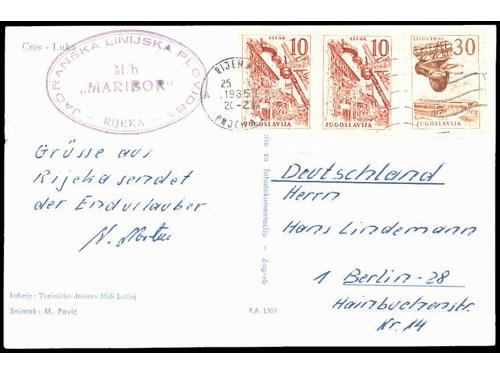 Cres - Luka
JADRANSKA LINIJSKA PLOVIDBA
M/b
„MARIBOR"
- RIJEKA -
RIJEKA
25
1965
20-21
SISAK
10
JUGOSLAVIJA
SISAK
10
JUGOSLAVIJA
LITOSTROJ
30
JUGOSLAVIJA
Grüsse aus
Rijeka sendet
der Endurlauber
Deutschland
Herrn
Hans Lindemann
1 Berlin-28
Hainbuchenstr.
Nr. 14
za fotodokumentaciju - Zagreb
Izdanje: Turističko društvo Mali Lošinj
Snimak: M. Pavić